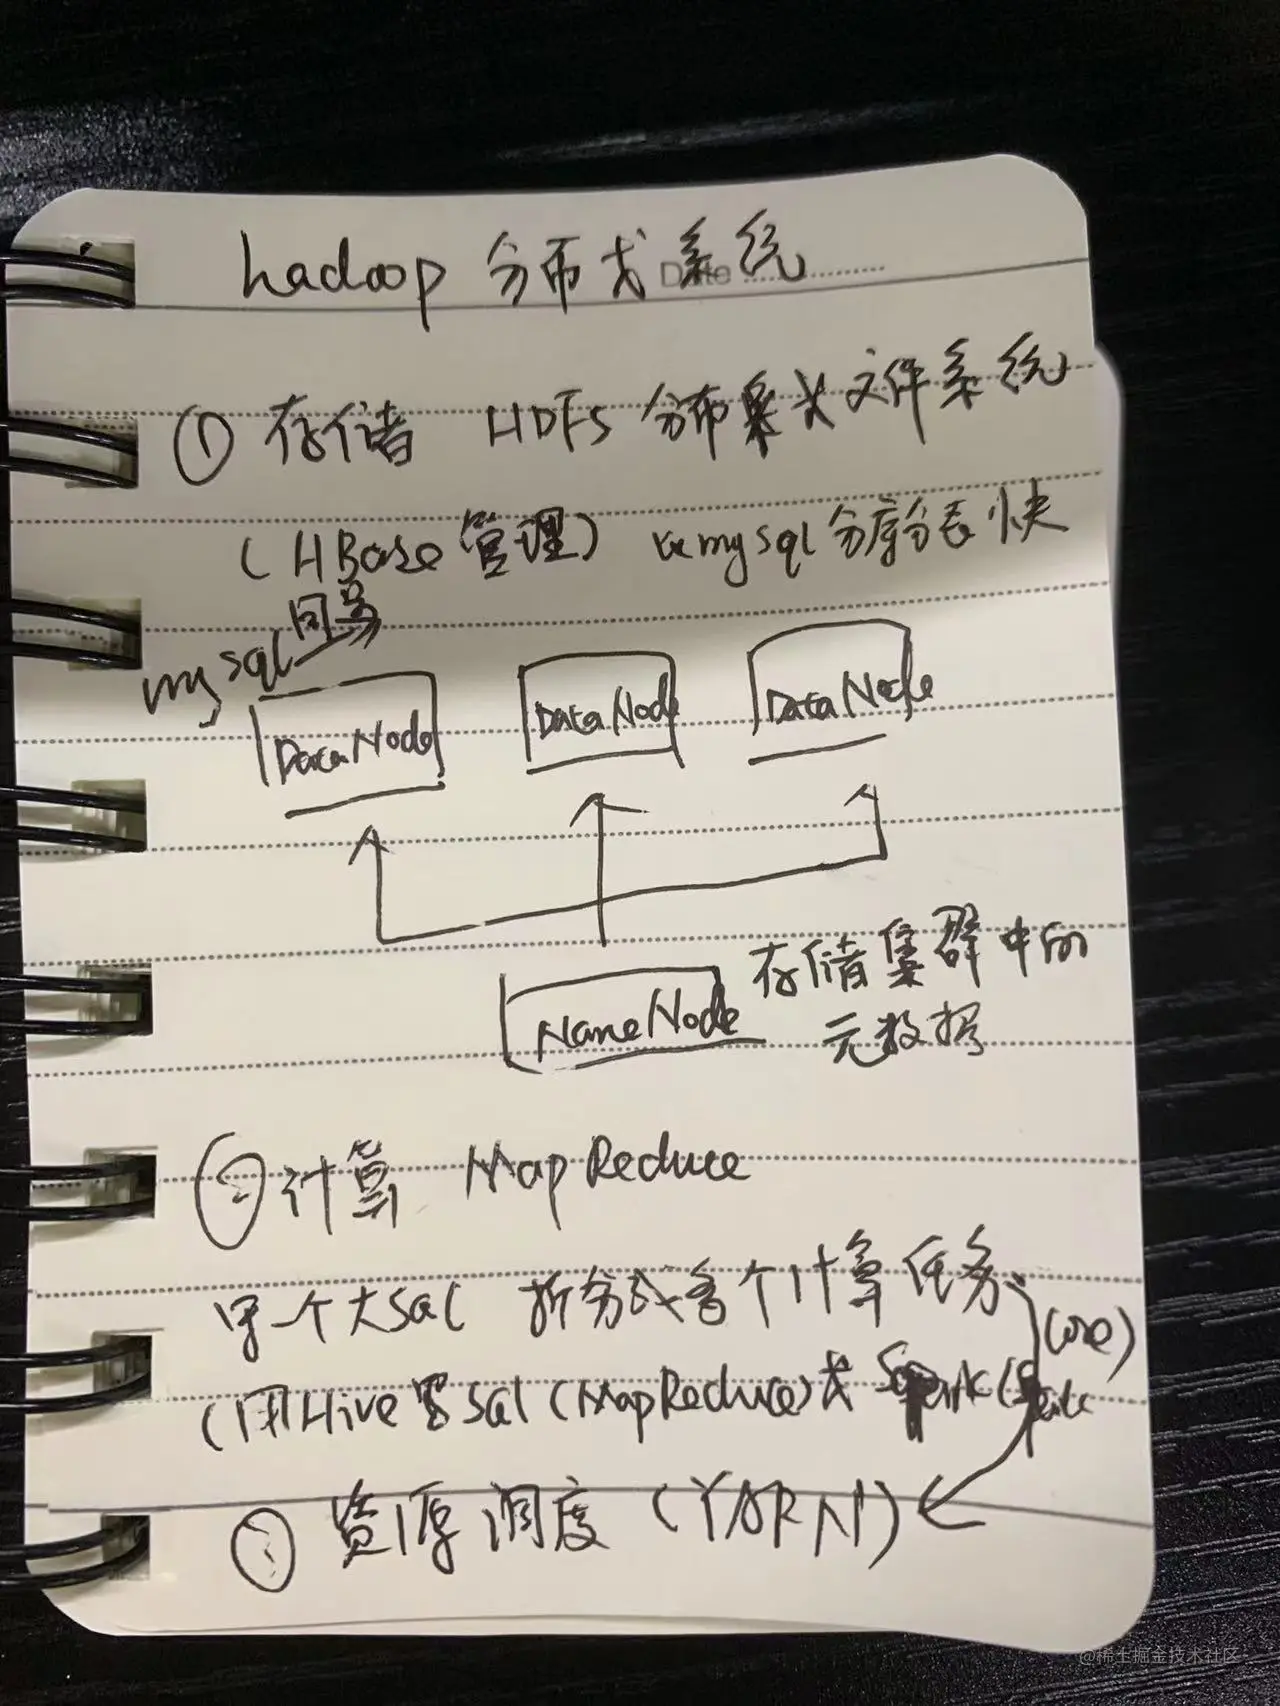 hadoop 分布式系统
Date
① 存储 HDFS 分布式文件系统
(HBase管理) 比mysql分库分表快
mysql同步
DataNode DataNode DataNode
NameNode 存储集群中的
元数据
② 计算 MapReduce
一个大sql 拆分成多个计算任务
(用Hive写sql (MapReduce)或 Spark (Spark
Core)
③ 资源调度 (YARN)
@稀土掘金技术社区